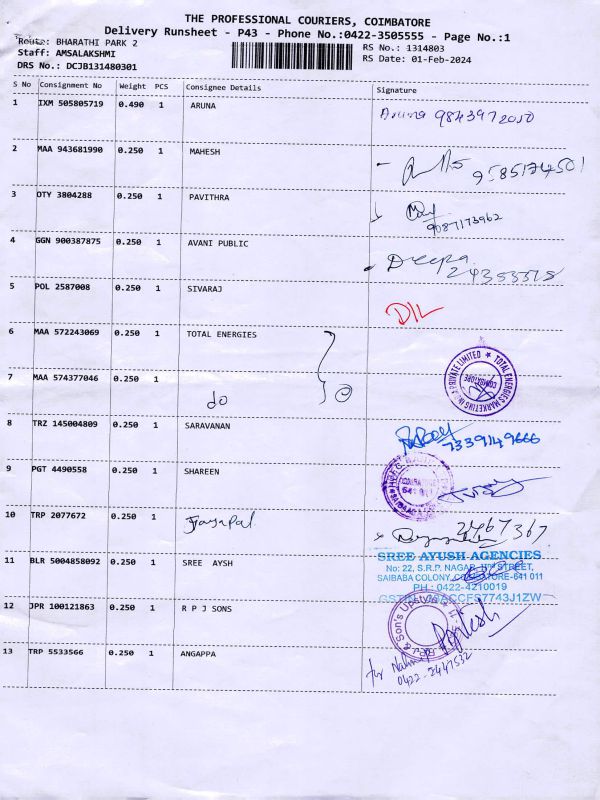 THE PROFESSIONAL COURIERS, COIMBATORE
Delivery Runsheet - P43 - Phone No.:0422-3505555 - Page No.:1
Route: BHARATHI PARK 2 RS No.: 1314803
Staff: AMSALAKSHMI RS Date: 01-Feb-2024
DRS No.: DCJB131480301
S No Consignment No Weight PCS Consignee Details Signature
1 IXM 505805719 0.490 1 ARUNA Aruna 9843972050
2 MAA 943681990 0.250 1 MAHESH 9585174501
3 OTY 3804288 0.250 1 PAVITHRA 9087173962
4 GGN 900387875 0.250 1 AVANI PUBLIC Deepa
5 POL 2587008 0.250 1 SIVARAJ D/L
6 MAA 572243069 0.250 1 TOTAL ENERGIES
TOTAL ENERGIES MARKETING PRIVATE LIMITED ★ COIMBATORE
7 MAA 574377046 0.250 1 do
8 TRZ 145004809 0.250 1 SARAVANAN 7339149666
9 PGT 4490558 0.250 1 SHAREEN
10 TRP 2077672 0.250 1 Jayapal 2467367
11 BLR 5004858092 0.250 1 SREE AYSH
SREE AYUSH AGENCIES
No: 22, S.R.P. NAGAR, STREET,
SAIBABA COLONY, COIMBATORE-641 011
PH : 0422-4210019
12 JPR 100121863 0.250 1 R P J SONS
13 TRP 5533566 0.250 1 ANGAPPA
for
0422-2447532